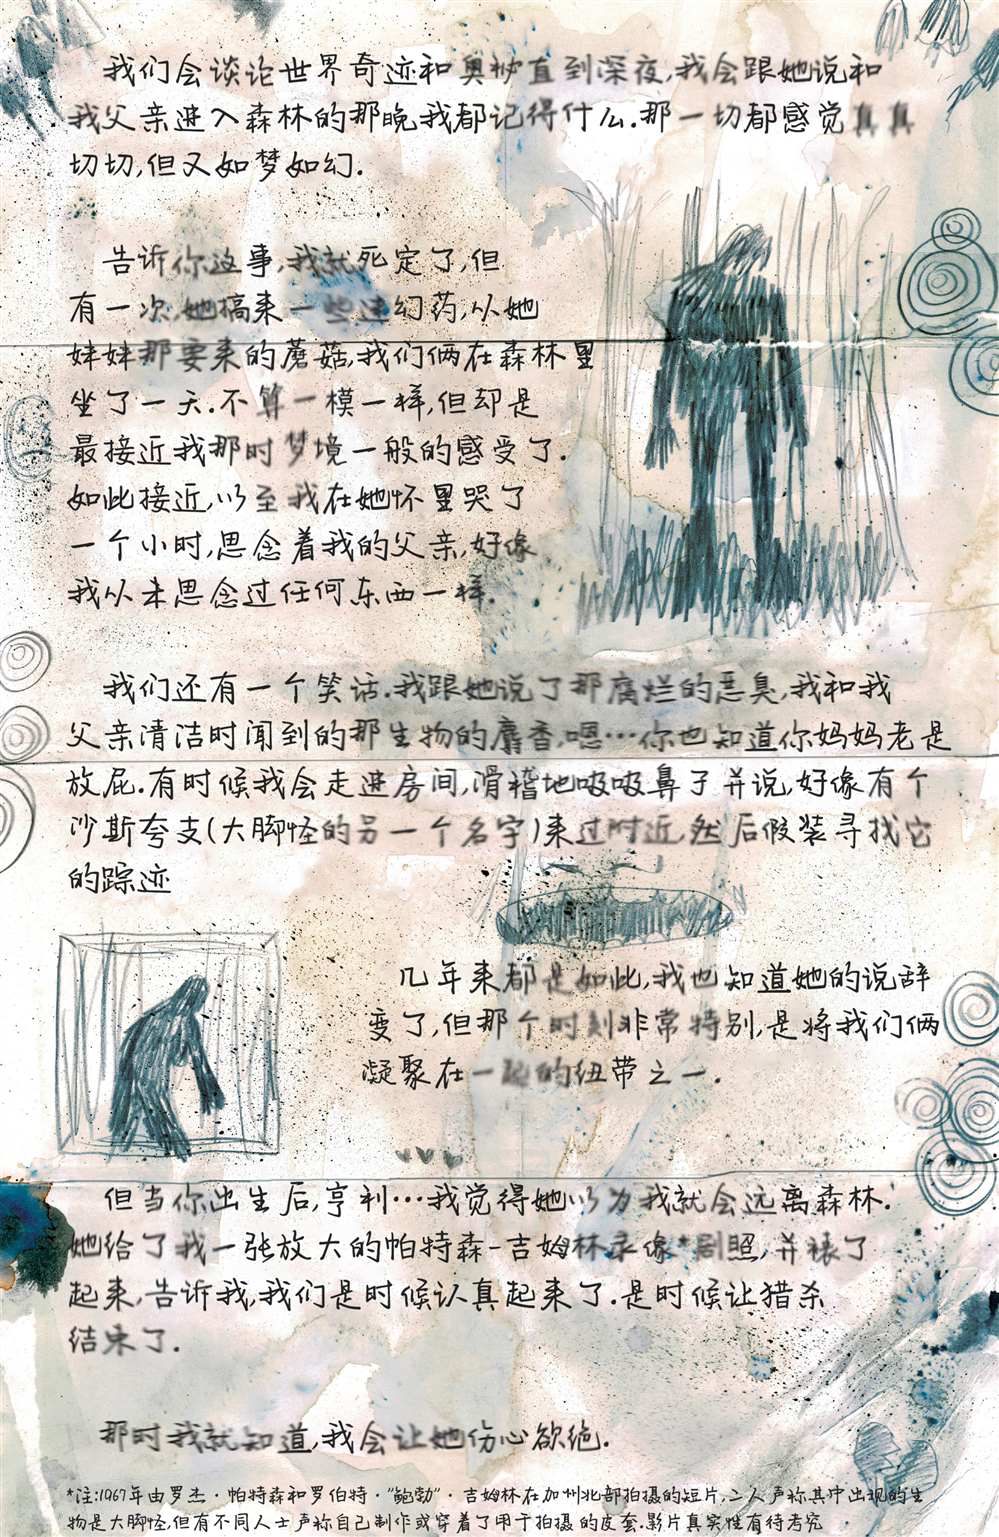 我们会谈论世界奇迹和奥妙直到深夜,我会跟她说和
我父亲进入森林的那晚我都记得什么.那一切都感觉真真
切切,但又如梦如幻.
告诉你这事,我就死定了,但
有一次,她搞来一些迷幻药,从她
妹妹那要来的蘑菇,我们俩在森林里
坐了一天.不算一模一样,但却是
最接近我那时梦境一般的感受了.
如此接近,以至我在她怀里哭了
一个小时,思念着我的父亲,好像
我从未思念过任何东西一样.
我们还有一个笑话.我跟她说了那腐烂的恶臭,我和我
父亲清洁时闻到的那生物的麝香,嗯…你也知道你妈妈老是
放屁.有时候我会走进房间,滑稽地吸吸鼻子并说,好像有个
沙斯夸支(大脚怪的另一个名字)来过附近,然后假装寻找它
的踪迹
几年来都是如此,我也知道她的说辞
变了,但那个时刻非常特别,是将我们俩
凝聚在一起的纽带之一.
但当你出生后,亨利…我觉得她以为我就会远离森林.
她给了我一张放大的帕特森-吉姆林录像*剧照,并裱了
起来,告诉我,我们是时候认真起来了.是时候让猎杀
结束了.
那时我就知道,我会让她伤心欲绝.
*注:1967年由罗杰·帕特森和罗伯特·"鲍勃"·吉姆林在加州北部拍摄的短片,二人声称其中出现的生
物是大脚怪,但有不同人士声称自己制作或穿着了用于拍摄的皮套.影片真实性有待考究.